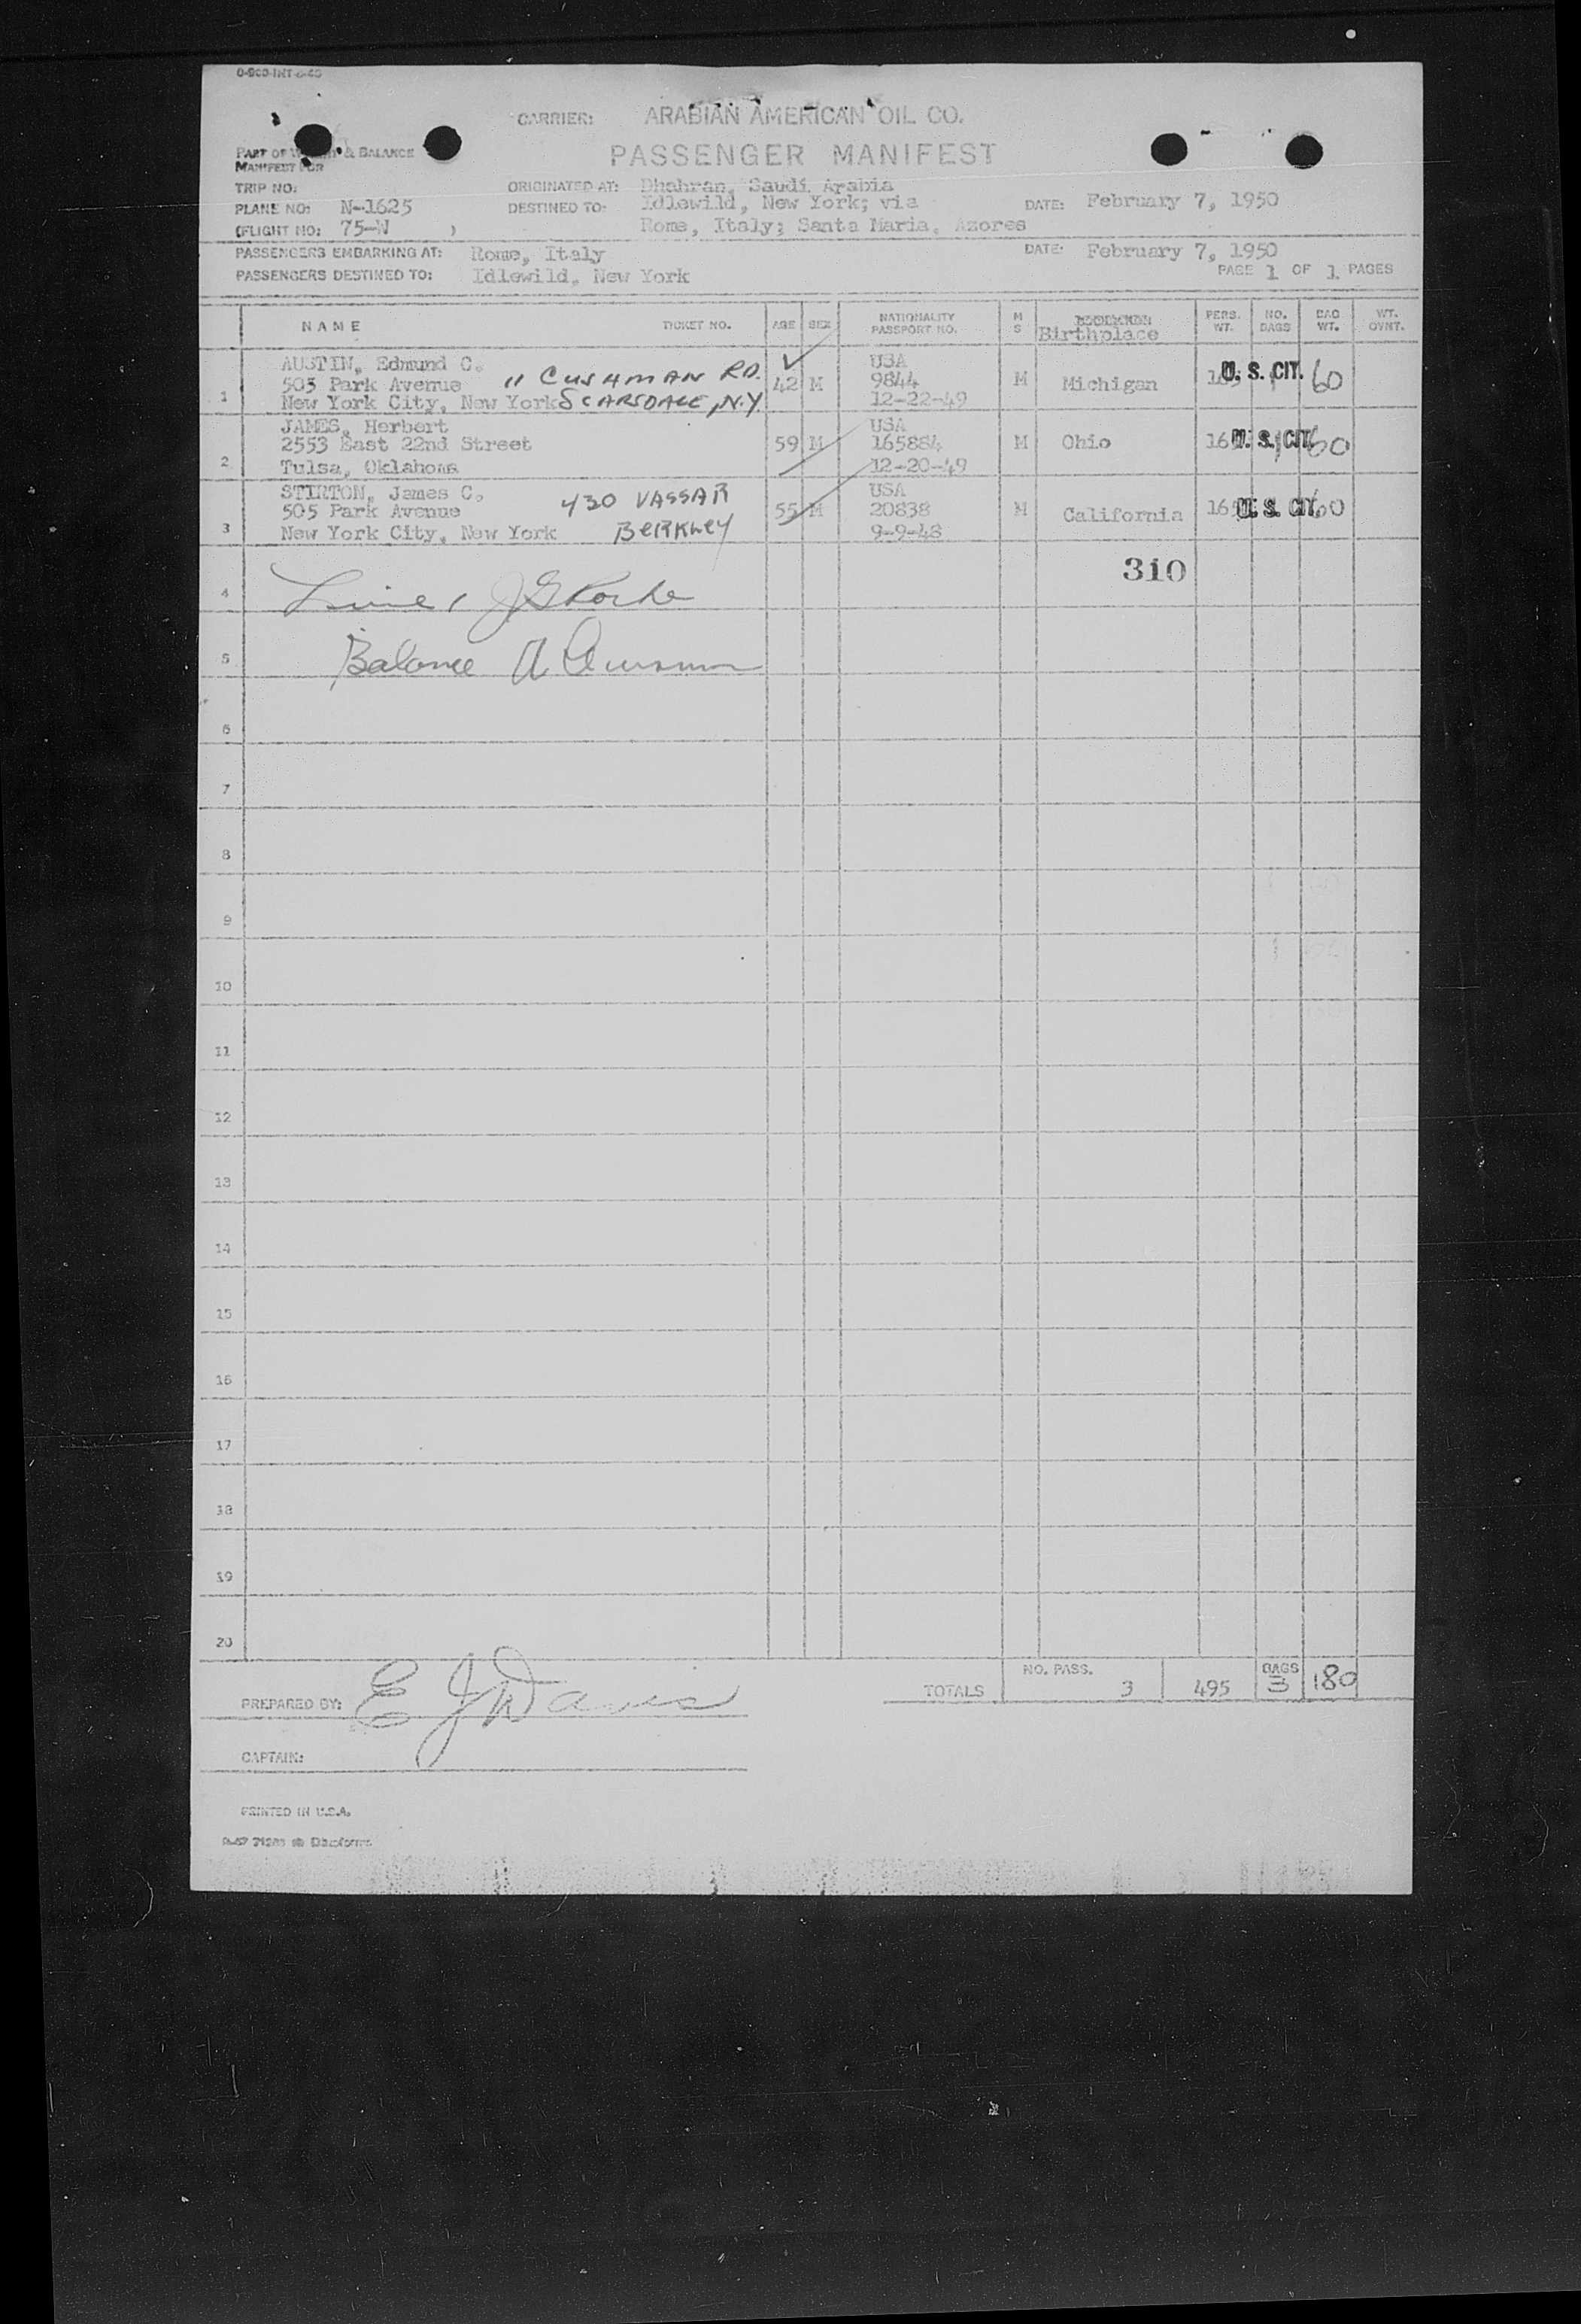 CARRIER: ARABIAN AMERICAN OIL CO.
PART OF & BALANCE
MANIFEST FOR
PASSENGER MANIFEST
TRIP NO:
ORIGINATED AT: Dhahran, Saudi Arabia
PLANE NO: N-1625
DESTINED TO: Idlewild, New York; via
DATE: February 7, 1950
(FLIGHT NO: 75-W )
Rome, Italy; Santa Maria, Azores
PASSENGERS EMBARKING AT: Rome, Italy
DATE: February 7, 1950
PASSENGERS DESTINED TO: Idlewild, New York
PAGE 1 OF 1 PAGES
NAME TICKET NO. AGE SEX NATIONALITY PASSPORT NO. M S Birthplace PERS. WT. NO. BAGS BAG WT. WT. OVNT.
AUSTIN, Edmund C. USA
505 Park Avenue 11 CUSHMAN RD. 42 M 9844 M Michigan U. S. CIT. 60
1 New York City, New York SCARSDALE, N.Y. 12-22-49
JAMES, Herbert USA
2553 East 22nd Street 59 M 165884 M Ohio U. S. CIT. 60
2 Tulsa, Oklahoma 12-20-49
STIRTON, James C. 430 VASSAR USA
505 Park Avenue 55 M 20838 M California U. S. CIT. 60
3 New York City, New York BERKLEY 9-9-48
310
4
5 Balance
6
7
8
9
10
11
12
13
14
15
16
17
18
19
20
TOTALS NO. PASS. 3 495 BAGS 3 180
PREPARED BY: E J Davis
CAPTAIN:
PRINTED IN U.S.A.